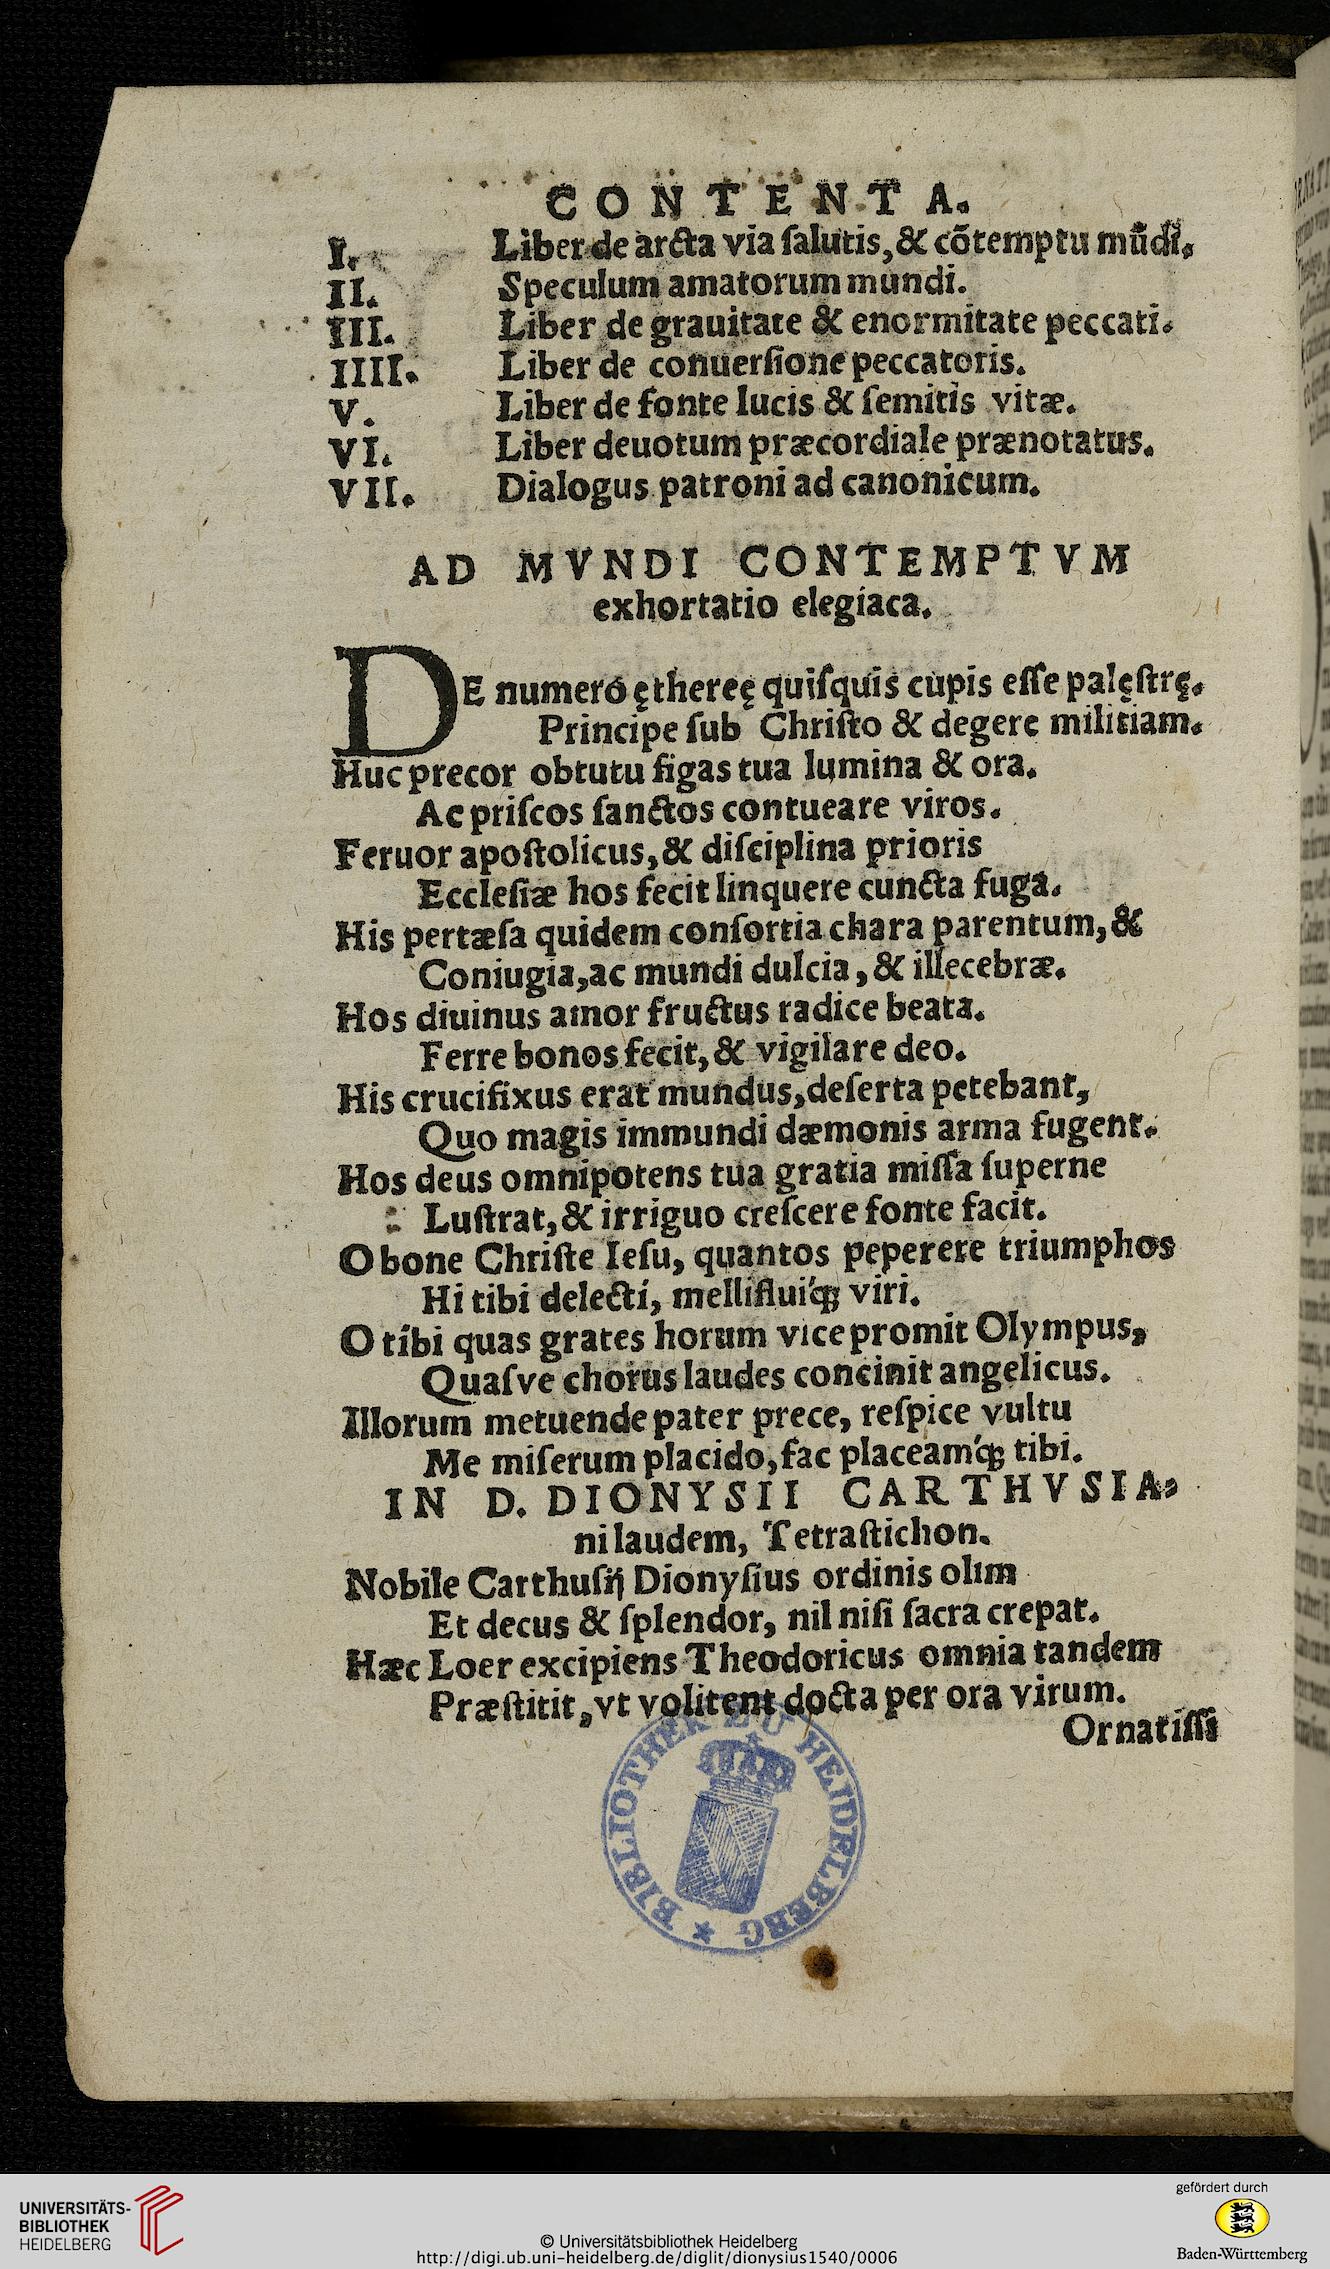 CONTENTA.
I. Liber de arcta via ſalutis, & cõtemptu mũdi.
II. Speculum amatorum mundi.
III. Liber de grauitate & enormitate peccati.
IIII. Liber de conuerſione peccatoris.
V. Liber de fonte lucis & ſemitis vitæ.
VI. Liber deuotum præcordiale prænotatus.
VII. Dialogus patroni ad canonicum.
AD MVNDI CONTEMPTVM
exhortatio elegiaca.
DE numero ętheręę quiſquis cupis eſſe palęſtrę.
Principe ſub Chriſto & degere militiam.
Huc precor obtutu figas tua lumina & ora.
Ac priſcos ſanctos contueare viros.
Feruor apoſtolicus, & diſciplina prioris
Eccleſiæ hos fecit linquere cuncta fuga.
His pertæſa quidem conſortia chara parentum, &
Coniugia, ac mundi dulcia, & illecebræ.
Hos diuinus amor fructus radice beata.
Ferre bonos fecit, & vigilare deo.
His crucifixus erat mundus, deſerta petebant,
Quo magis immundi dæmonis arma fugent.
Hos deus omnipotens tua gratia miſſa ſuperne
Luſtrat, & irriguo creſcere fonte facit.
O bone Chriſte Ieſu, quantos peperere triumphos
Hi tibi delecti, melliflui'q; viri.
O tibi quas grates horum vice promit Olympus,
Quaſve chorus laudes concinit angelicus.
Illorum metuende pater prece, reſpice vultu
Me miſerum placido, fac placeam'q; tibi.
IN D. DIONYSII CARTHVSIA-
ni laudem, Tetraſtichon.
Nobile Carthuſij Dionyſius ordinis olim
Et decus & ſplendor, nil niſi ſacra crepat.
Hæc Loer excipiens Theodoricus omnia tandem
Præſtitit, vt volitent docta per ora virum.
Ornatiſſi
BIBLIOTHEK ZU HEIDELBERG
UNIVERSITÄTS-
BIBLIOTHEK
HEIDELBERG
© Universitätsbibliothek Heidelberg
http://digi.ub.uni-heidelberg.de/diglit/dionysius1540/0006
gefördert durch
Baden-Württemberg